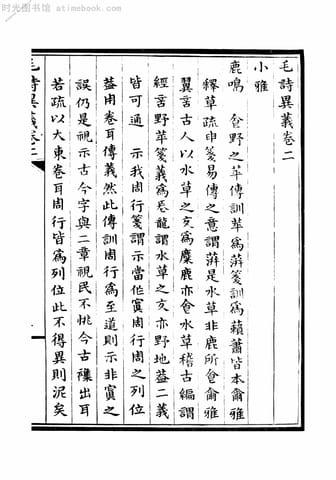 时光图书馆 - atimebook.com
毛詩異義卷二
小雅
鹿鳴 食野之苹傳訓苹爲蓱箋訓爲藾蕭皆本爾雅
釋草疏申箋易傳之意謂蓱是水草非鹿所食爾雅
翼言古人以水草之交爲麋鹿亦食水草稽古編謂
經言野苹箋義爲長龍謂水草之交亦野地蓋二義
皆可通 示我周行箋謂示當作寘周行周之列位
蓋用卷耳傳義然此傳訓周行爲至道則示非寘之
誤仍是視示古今字與二章視民不恌今古襍出耳
若疏以大東卷耳周行皆爲列位此不得異則泥矣
毛詩異義卷二
一